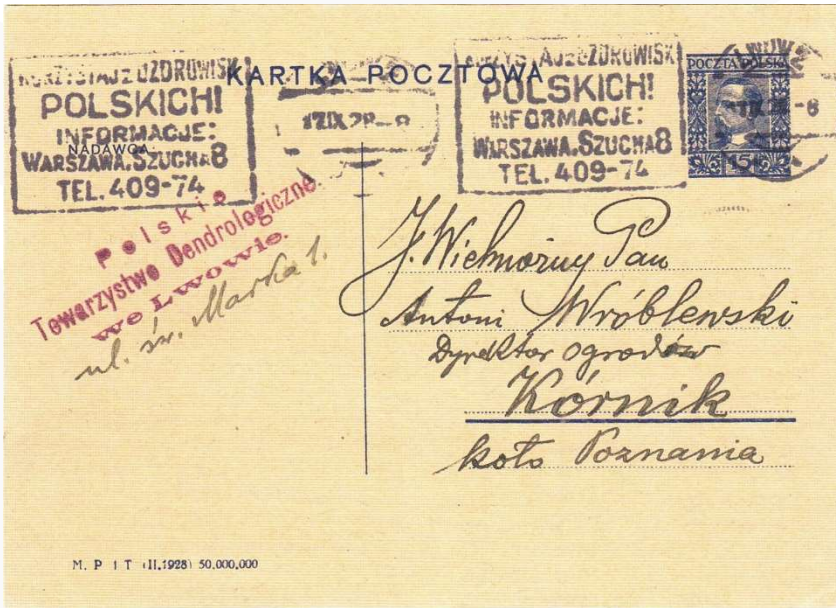 KARTKA POCZTOWA
KORZYSTAJ Z UZDROWISK
POLSKICH!
INFORMACJE:
WARSZAWA. SZUCHA 8
TEL. 409-74
17 IX 28 - 8
KORZYSTAJ Z UZDROWISK
POLSKICH!
INFORMACJE:
WARSZAWA. SZUCHA 8
TEL. 409-74
LWÓW
IX 28 - 8
POCZTA POLSKA
15
NADAWCA:
Polskie
Towarzystwo Dendrologiczne
we Lwowie.
ul. św. Marka 1.
J. Wielmożny Pan
Antoni Wróblewski
Dyrektor ogrodów
Kórnik
koło Poznania
M. P i T (II.1928) 50,000,000